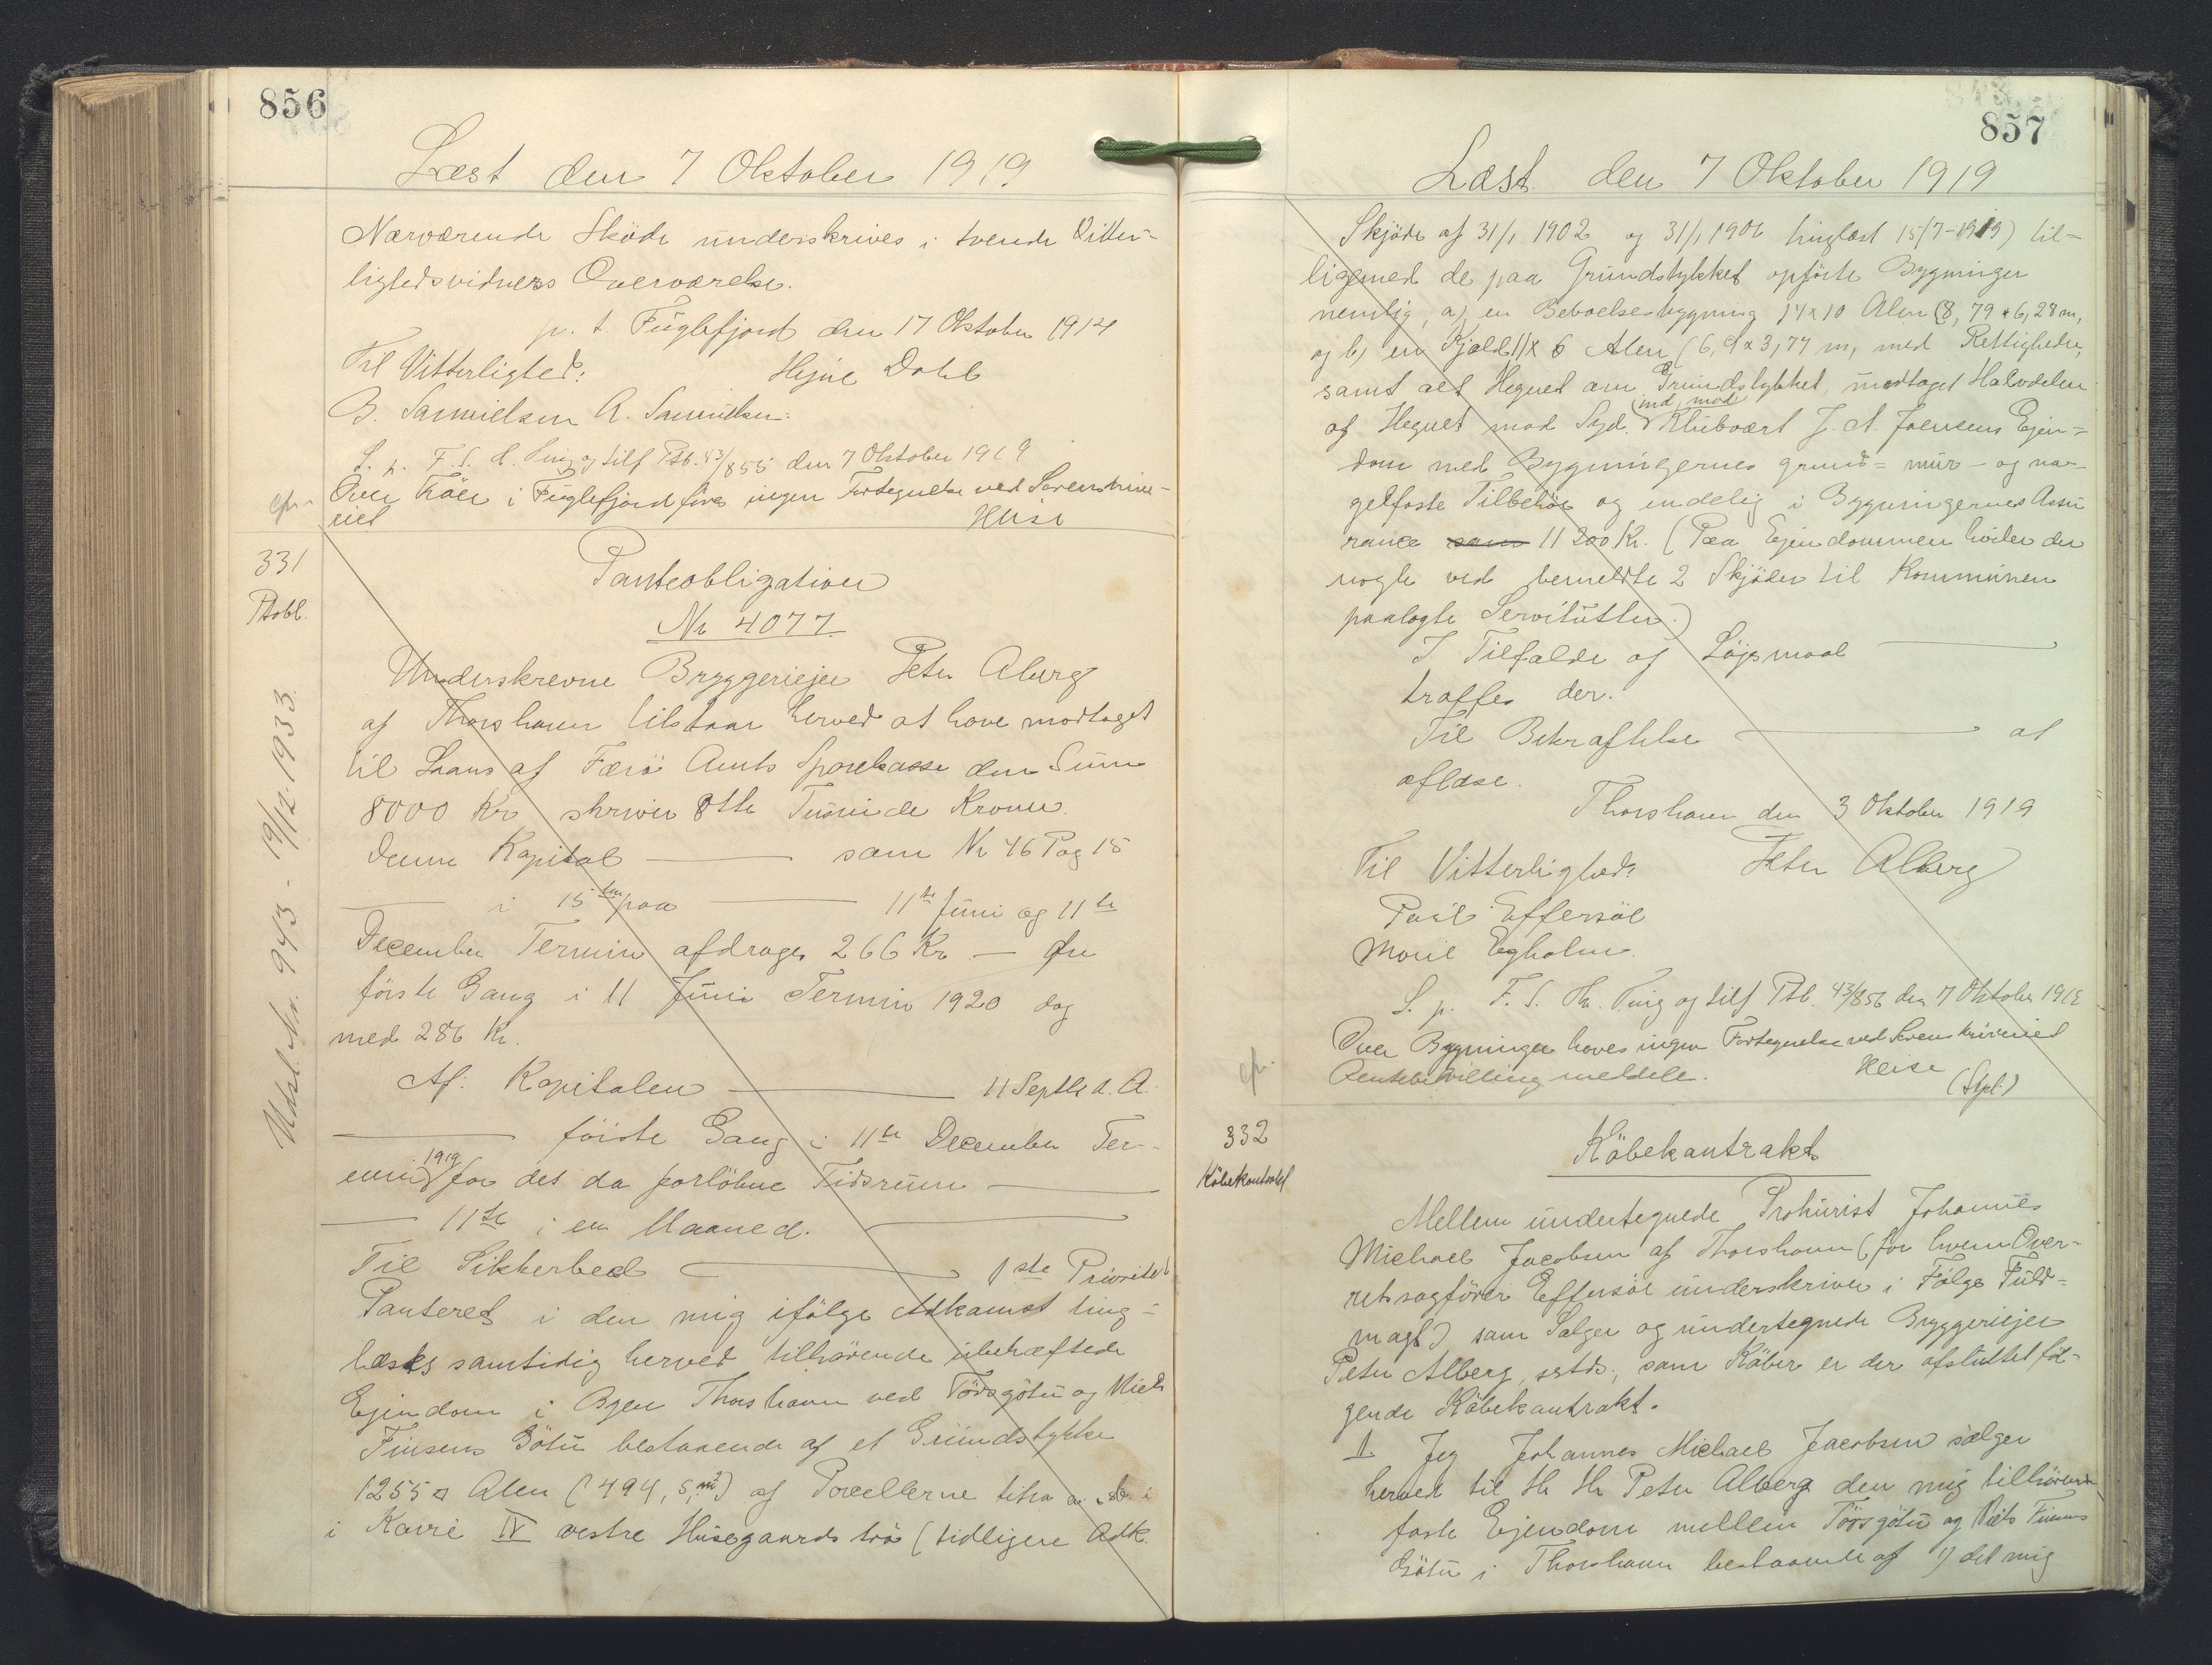 856
Læst den 7 Oktober 1919
Nærværende Sköde underskrives i tvende Vitter-
lighedsvidners Overværelse.
p. t. Fuglefjord den 17 Oktober 1914
Til Vitterlighed: Dahl
B. Samuelsen A. Samuelsen.
L. p. F. S. H. Ting og tilf Ptb. 43/855 den 7 Oktober 1919
Over Tröer i Fuglefjord föres ingen Fortegnelse ved Sorenskrive-
riet Heise
cfr.
331
Ptobl.
Udsl. Nr. 943 - 19/12-1933.
Panteobligation
Nr 4077
Underskrevne Bryggeriejer Peter Alberg
af Thorshavn tilstaar herved at have modtaget
til Laans af Færö Amts Sparekasse den Sum
8000 Kr skriver Otte Tusinde Kroner.
Denne Kapital — som Nr 46 Pag 15
— i 15 paa — 11te Juni og 11te
December Termin afdrages 266 Kr — Öre
förste Gang i 11 Juni Termin 1920 dog
med 286 Kr.
Af Kapitalen — 11 Septbr d. A.
— förste Gang i 11te December Ter-
min 1919 for det da forløbne Tidsrum —
— 11te i en Maaned. —
Til Sikkerhed — 1ste Prioritets
Panteret i den mig ifölge Adkomst ting-
læses samtidig herved tilhörende ubehæftede
Ejendom i Byen Thorshavn ved Törsgötu og Niels
Finsens Götu bestaaende af et Grundstykke
1255 □ Alen (494,5 m²) af Parcellerne litra a
i Kavie IV vestre Husegaards trö (tidligere Adk.
857
Læst den 7 Oktober 1919
Skjöde af 31/1 1902 og 31/1 1906 tinglæst 15/7-1919) til-
ligemed de paa Grundstykket opförte Bygninger
nemlig, a) en Beboelsesbygning 14x10 Alen (8,79 x 6,28 m,
og b) en Kjald 11 x 6 Alen (6,9 x 3,77 m, med Rettigheder,
samt alt Hegnet om Grundstykket, undtaget Halvdelen
af Hegnet mod Syd ind mod Klubvært J. A. Joensens Ejen-
dom med Bygningernes grund- mur- og na-
gelfaste Tilbehör og endelig i Bygningernes Assu
rance som 11200 Kr. (Paa Ejendommen hviler der
nogle ved bemeldte 2 Skjöder til Kommunen
paalagte Servitutter.)
I Tilfælde af Søgsmaal —
træffes der.
Til Bekræftelse — at
aflæse.
Thorshavn den 3 Oktober 1919
Til Vitterlighed: Peter Alberg
Poul Effersöe
Egholm
L. p. F. S. Th. Ting og tilf Ptb. 43/856 den 7 Oktober 1919
Over Bygninger haves ingen Fortegnelse ved Sorenskriveriet
Rentebevilling meddelt. Heise
(Spl.)
cfr.
332
Köbekontrakt
Köbekontrakt
Mellem undertegnede Prokurist Johannes
Michael Jacobsen af Thorshavn (for hvem Over-
retssagförer Effersöe underskriver i Fölge Fuld-
magt) som Sælger og undertegnede Bryggeriejer
Peter Alberg, sstds., som Köber er der afsluttet föl-
gende Köbekontrakt.
1. Jeg Johannes Michael Jacobsen sælger
herved til Hr Peter Alberg den mig tilhörende
faste Ejendom mellem Törsgötu og Niels Finsens
Götu i Thorshavn bestaaende af 1) det mig